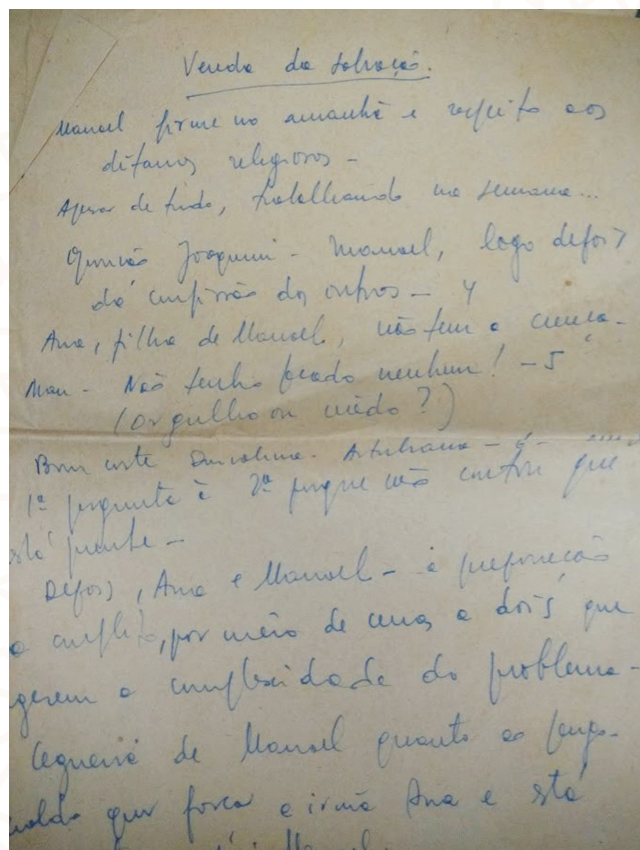 Venda da salvação.
Manoel firme no amanhã e respeito aos
ditames religiosos –
Apesar de tudo, trabalhando na semana...
Joaquim – Manoel, logo depois
da confissão dos outros – 4
Ana, filha de Manoel, não tem a
Man – Não tenho pecado nenhum! – 5
(Orgulho ou medo?)
Bom corte – é –
1ª pergunta à 2ª porque não contou que
stá
Depois, Ana e Manoel – a preparação
o conflito, por meio de cenas a dois que
gerem a complexidade do problema –
Cegueira de Manoel quanto ao
naldo quer forçar a irmã Ana e stá
Manoel